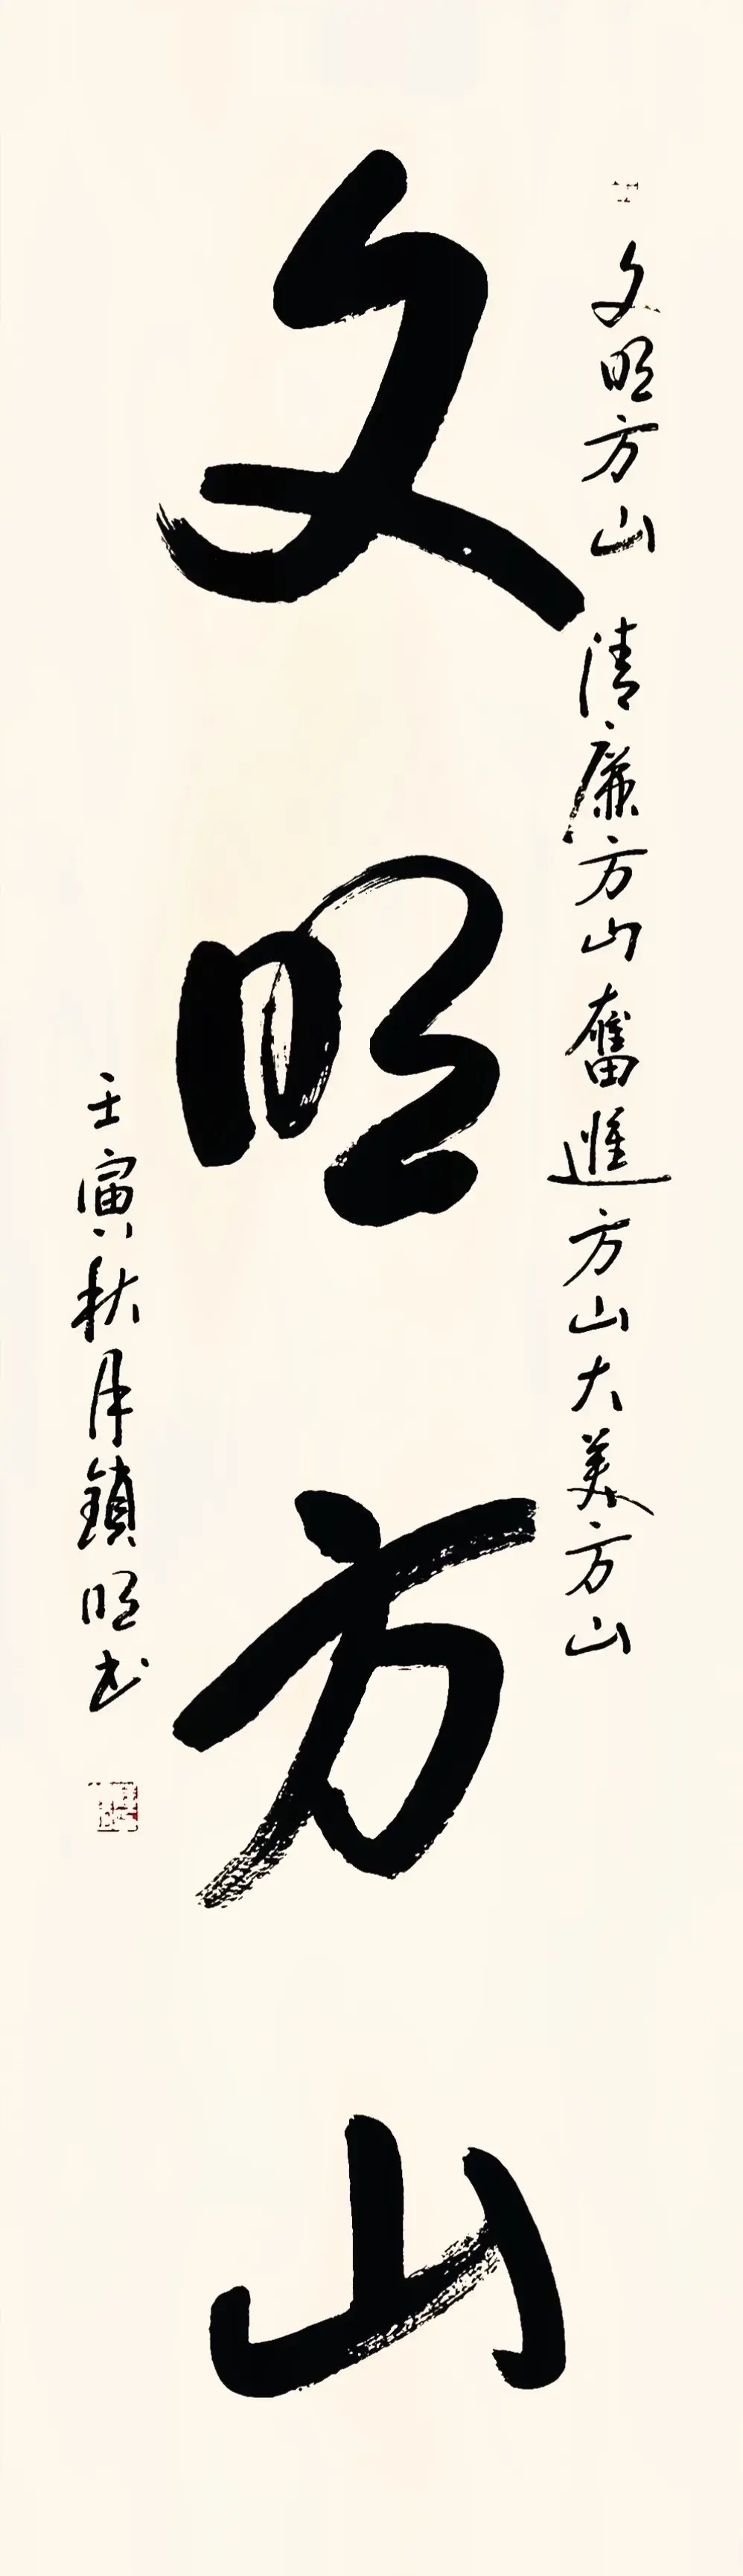 文明方山清廉方山奮進方山大美方山
文明方山
壬寅秋月鎮明书